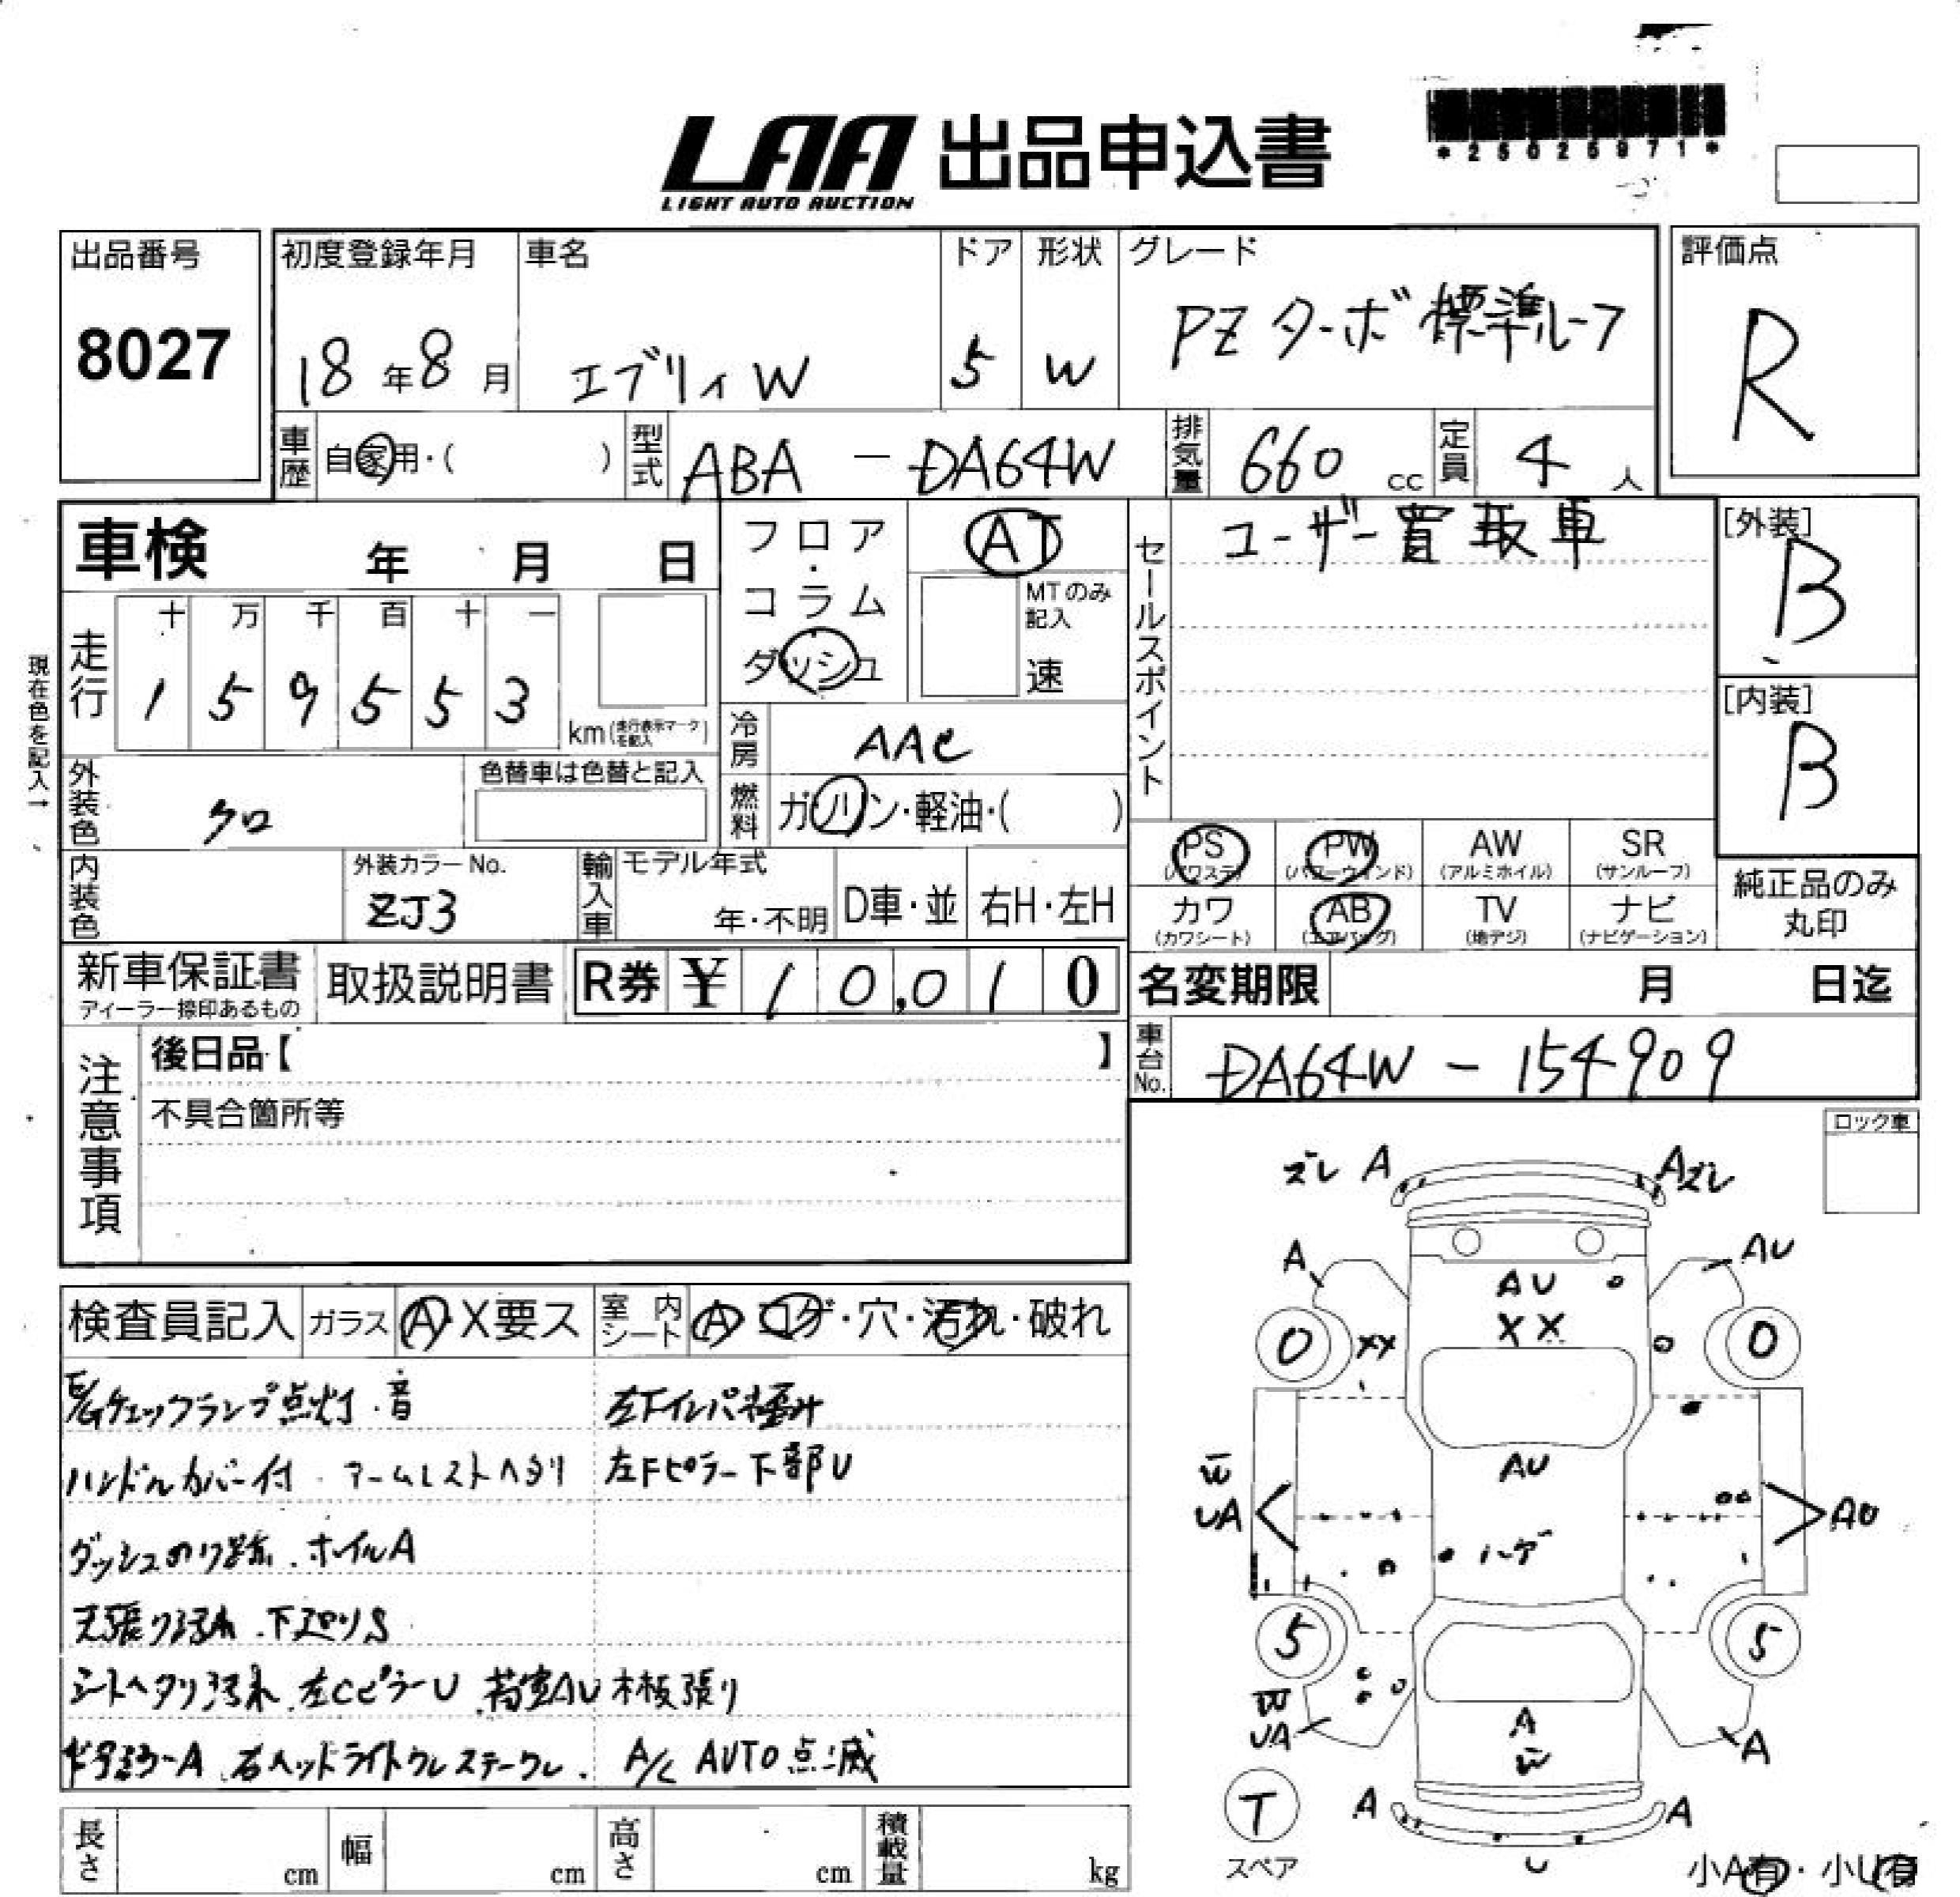 LAA 出品申込書
LIGHT AUTO AUCTION
*25025971*
出品番号
8027
初度登録年月
18年8月
車名
エブリィW
ドア
5
形状
W
グレード
PZターボ標準ルーフ
評価点
R
車歴
自家用・( )
型式
ABA - DA64W
排気量
660 cc
定員
4 人
車検 年 月 日
フロア・コラム
ダッシュ
AT
MTのみ記入
速
セールスポイント
ユーザー買取車
[外装]
B
[内装]
B
現在色を記入→
走行
十 万 千 百 十 一
1 5 9 5 5 3
km(走行表示マークを記入)
冷房
AAC
外装色
クロ
色替車は色替と記入
燃料
ガソリン・軽油・( )
PS
(パワステ)
PW
(パワーウインド)
AW
(アルミホイル)
SR
(サンルーフ)
カワ
(カワシート)
AB
(エアバッグ)
TV
(地デジ)
ナビ
(ナビゲーション)
純正品のみ
丸印
内装色
外装カラーNo.
ZJ3
輸入車
モデル年式
年・不明
D車・並
右H・左H
新車保証書
ディーラー捺印あるもの
取扱説明書
R券 ¥ 10,010
名変期限 月 日迄
注意事項
後日品【 】
不具合箇所等
車台No.
DA64W - 154909
ロック車
検査員記入
ガラス
A X要ス
室内シート
A コゲ・穴・汚れ・破れ
E/Gチェックランプ点灯.音
左Fインパネ歪み
ハンドルカバー付 アームレストヘタリ
左Fピラー下部U
ダッシュのり跡.ホイルA
天張り汚れ.下廻りS
シートヘタリ汚れ.左CピラーU
荷室AU 木板張り
ドアミラーA 右ヘッドライトウレステークレ.
A/C AUTO点滅
ズレ A
Aズレ
A
AU
AU
XX
0
XX
0
AU
W
UA
AU
ハゲ
5
5
W
UA
A
W
A
T
スペア
A
A
U
小A有・小U有
長さ cm
幅 cm
高さ cm
積載量 kg